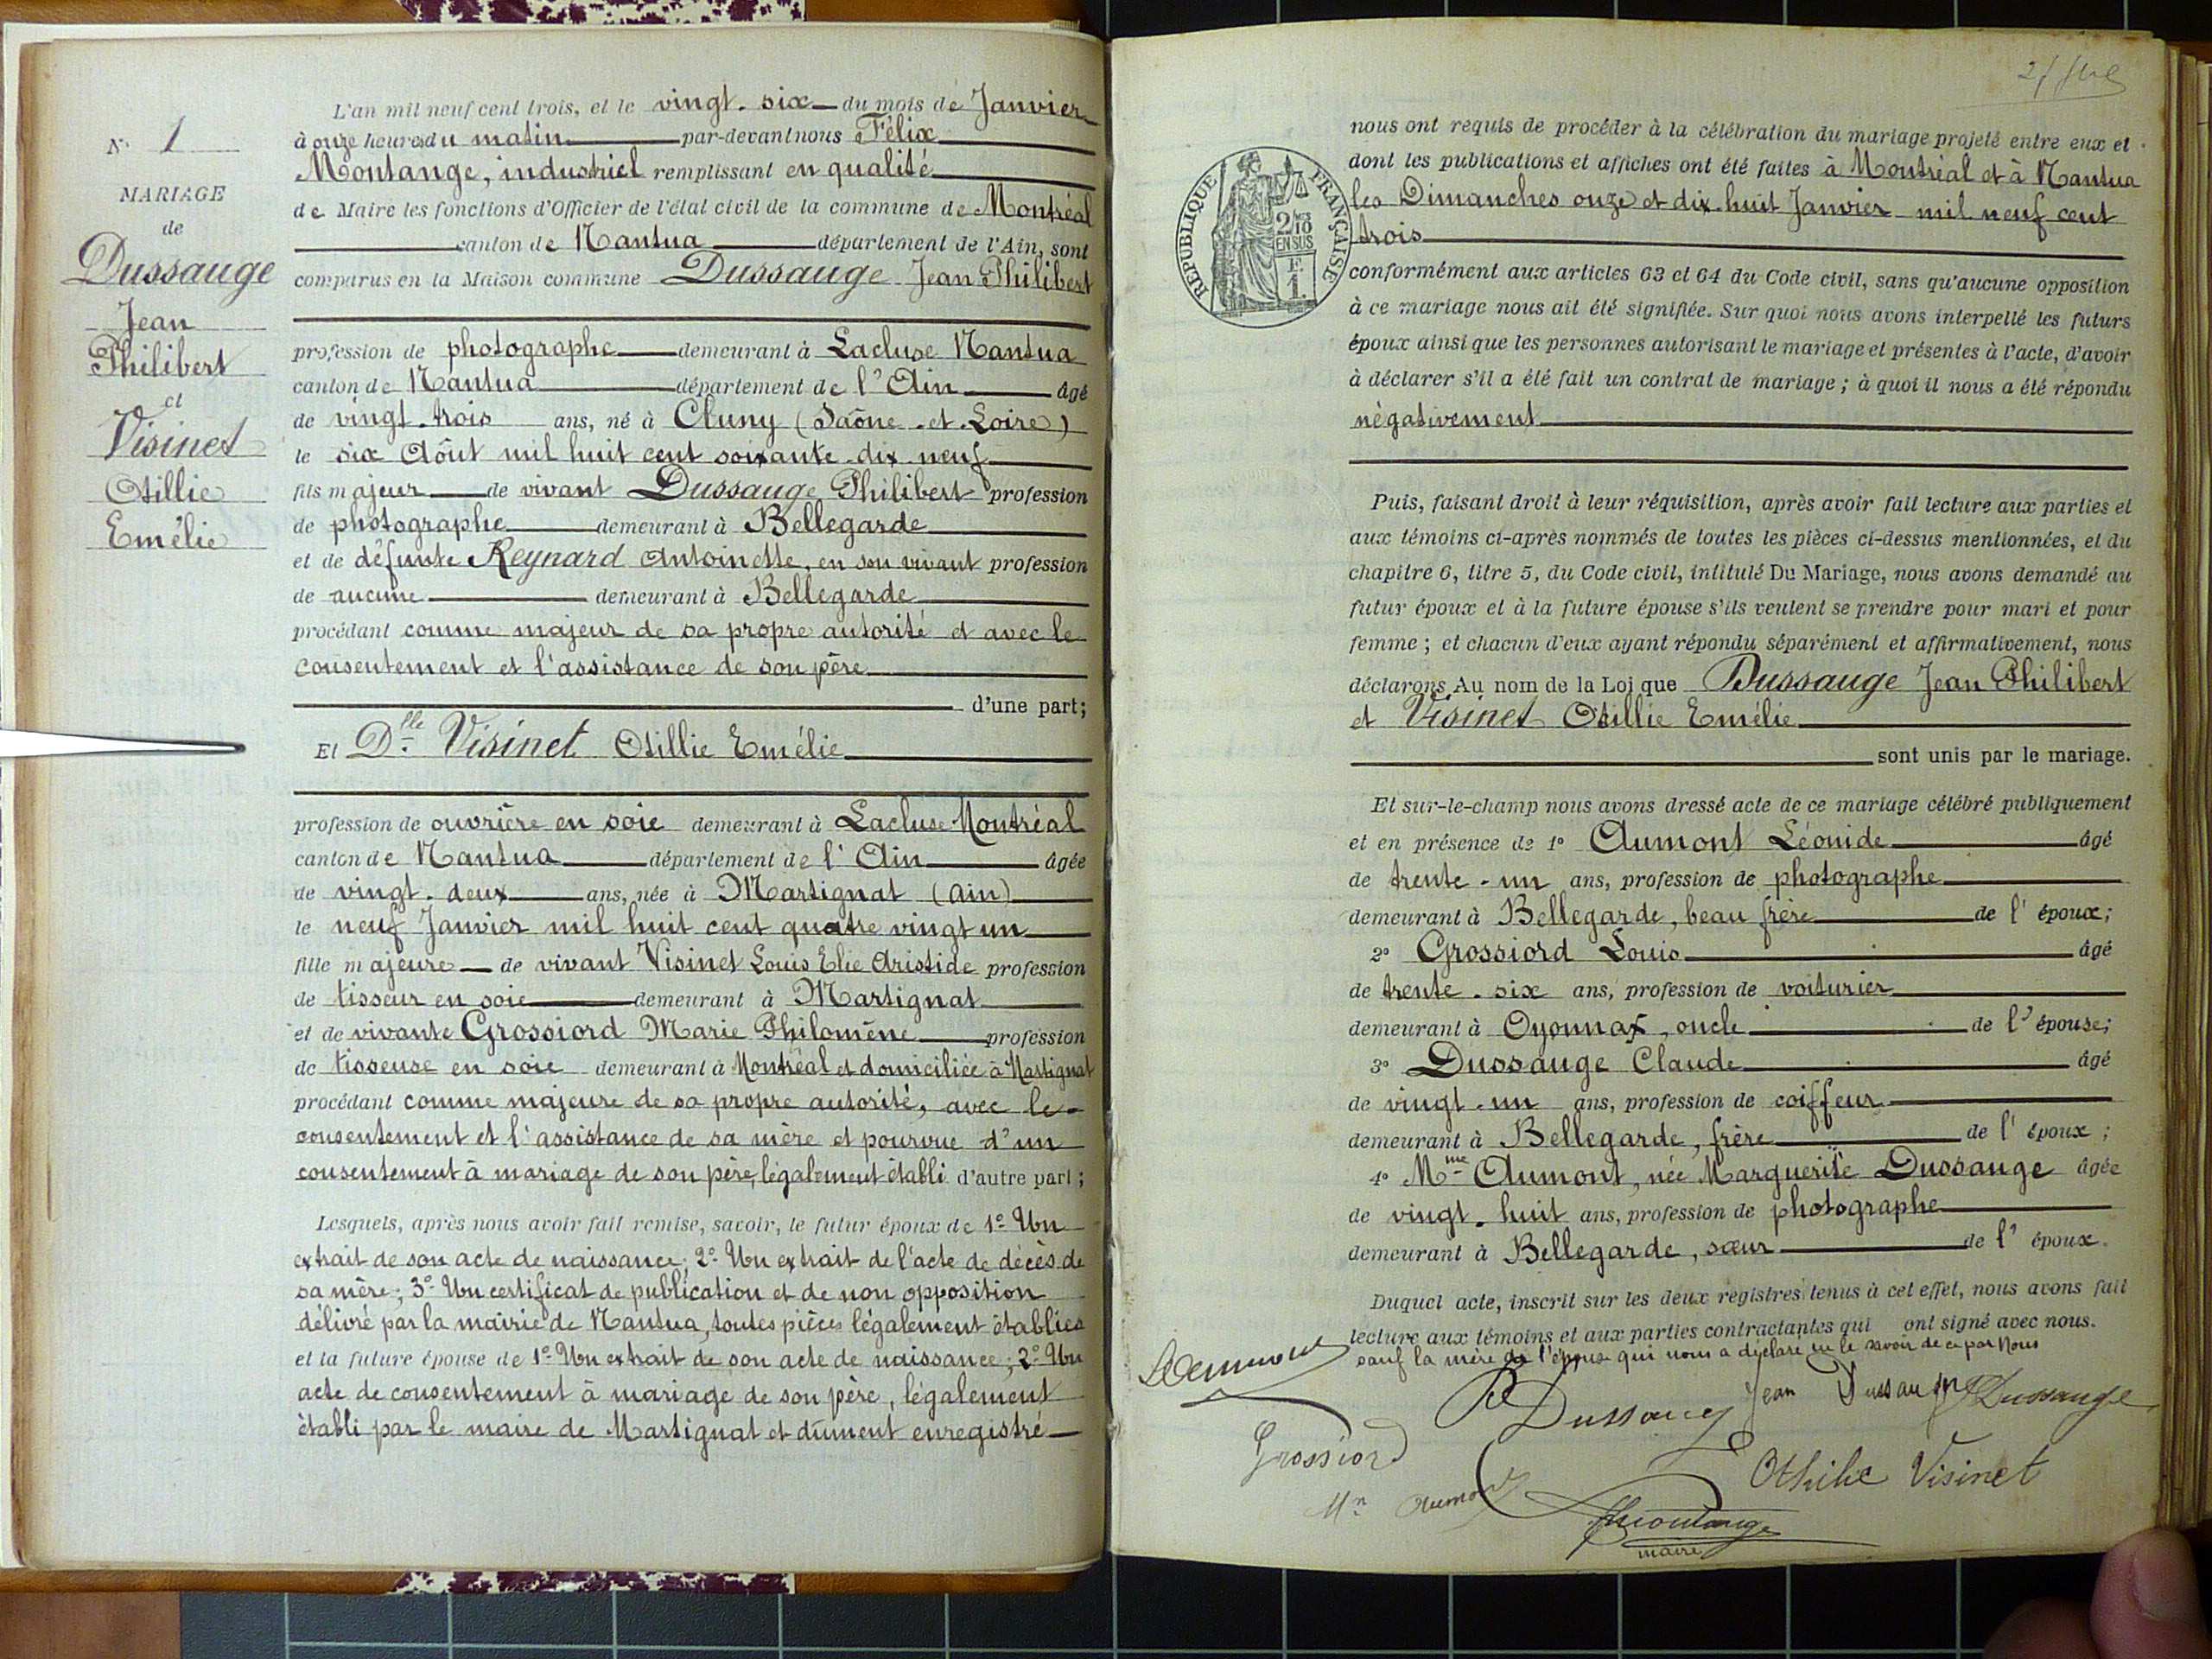 N° 1
MARIAGE
de
Dussauge
Jean
Philibert
et
Visinet
Otillie
Emélie
L'an mil neuf cent trois, et le vingt-six du mois de Janvier
à onze heures du matin par-devant nous Félix
Montange, industriel remplissant en qualité
de Maire les fonctions d'Officier de l'état civil de la commune de Montréal
canton de Nantua département de l'Ain, sont
comparus en la Maison commune Dussauge Jean Philibert
profession de photographe demeurant à Lacluse Nantua
canton de Nantua département de l'Ain âgé
de vingt-trois ans, né à Cluny (Saône-et-Loire)
le six Août mil huit cent soixante-dix-neuf
fils majeur de vivant Dussauge Philibert profession
de photographe demeurant à Bellegarde
et de défunte Reynard Antoinette, en son vivant profession
de aucune demeurant à Bellegarde
procédant comme majeur de sa propre autorité et avec le
consentement et l'assistance de son père
d'une part;
Et Dlle Visinet Otillie Emélie
profession de ouvrière en soie demeurant à Lacluse Montréal
canton de Nantua département de l'Ain âgée
de vingt-deux ans, née à Martignat (Ain)
le neuf Janvier mil huit cent quatre vingt un
fille majeure de vivant Visinet Louis Elie Aristide profession
de tisseur en soie demeurant à Martignat
et de vivante Grossiord Marie Philomène profession
de tisseuse en soie demeurant à Montréal et domiciliée à Martignat
procédant comme majeure de sa propre autorité, avec le
consentement et l'assistance de sa mère et pourvue d'un
consentement à mariage de son père, légalement établi d'autre part;
Lesquels, après nous avoir fait remise, savoir, le futur époux de 1° Un
extrait de son acte de naissance; 2° Un extrait de l'acte de décès de
sa mère; 3° Un certificat de publication et de non opposition
délivré par la mairie de Nantua, toutes pièces légalement établies
et la future épouse de 1° Un extrait de son acte de naissance; 2° Un
acte de consentement à mariage de son père, légalement
établi par le maire de Martignat et dûment enregistré
RÉPUBLIQUE FRANÇAISE
2/10
EN SUS
F.
1.
nous ont requis de procéder à la célébration du mariage projeté entre eux et
dont les publications et affiches ont été faites à Montréal et à Nantua
les Dimanches onze et dix-huit Janvier mil neuf cent
trois
conformément aux articles 63 et 64 du Code civil, sans qu'aucune opposition
à ce mariage nous ait été signifiée. Sur quoi nous avons interpellé les futurs
époux ainsi que les personnes autorisant le mariage et présentes à l'acte, d'avoir
à déclarer s'il a été fait un contrat de mariage; à quoi il nous a été répondu
négativement
Puis, faisant droit à leur réquisition, après avoir fait lecture aux parties et
aux témoins ci-après nommés de toutes les pièces ci-dessus mentionnées, et du
chapitre 6, titre 5, du Code civil, intitulé Du Mariage, nous avons demandé au
futur époux et à la future épouse s'ils veulent se prendre pour mari et pour
femme; et chacun d'eux ayant répondu séparément et affirmativement, nous
déclarons Au nom de la Loi que Dussauge Jean Philibert
et Visinet Otillie Emélie
sont unis par le mariage.
Et sur-le-champ nous avons dressé acte de ce mariage célébré publiquement
et en présence de 1° Aumont Léonide âgé
de trente-un ans, profession de photographe
demeurant à Bellegarde, beau frère de l'époux;
2° Grossiord Louis âgé
de trente-six ans, profession de voiturier
demeurant à Oyonnax, oncle de l'épouse;
3° Dussauge Claude âgé
de vingt-un ans, profession de coiffeur
demeurant à Bellegarde, frère de l'époux;
4° Mme Aumont, née Marguerite Dussauge âgée
de vingt-huit ans, profession de photographe
demeurant à Bellegarde, sœur de l'époux.
Duquel acte, inscrit sur les deux registres tenus à cet effet, nous avons fait
lecture aux témoins et aux parties contractantes qui ont signé avec nous.
sauf la mère de l'épouse qui nous a déclaré ne le savoir de ce par Nous
Jean Dussauge Dussauge
Dussauge
Grossiord
Othilie Visinet
Mn Aumont
Montange
maire